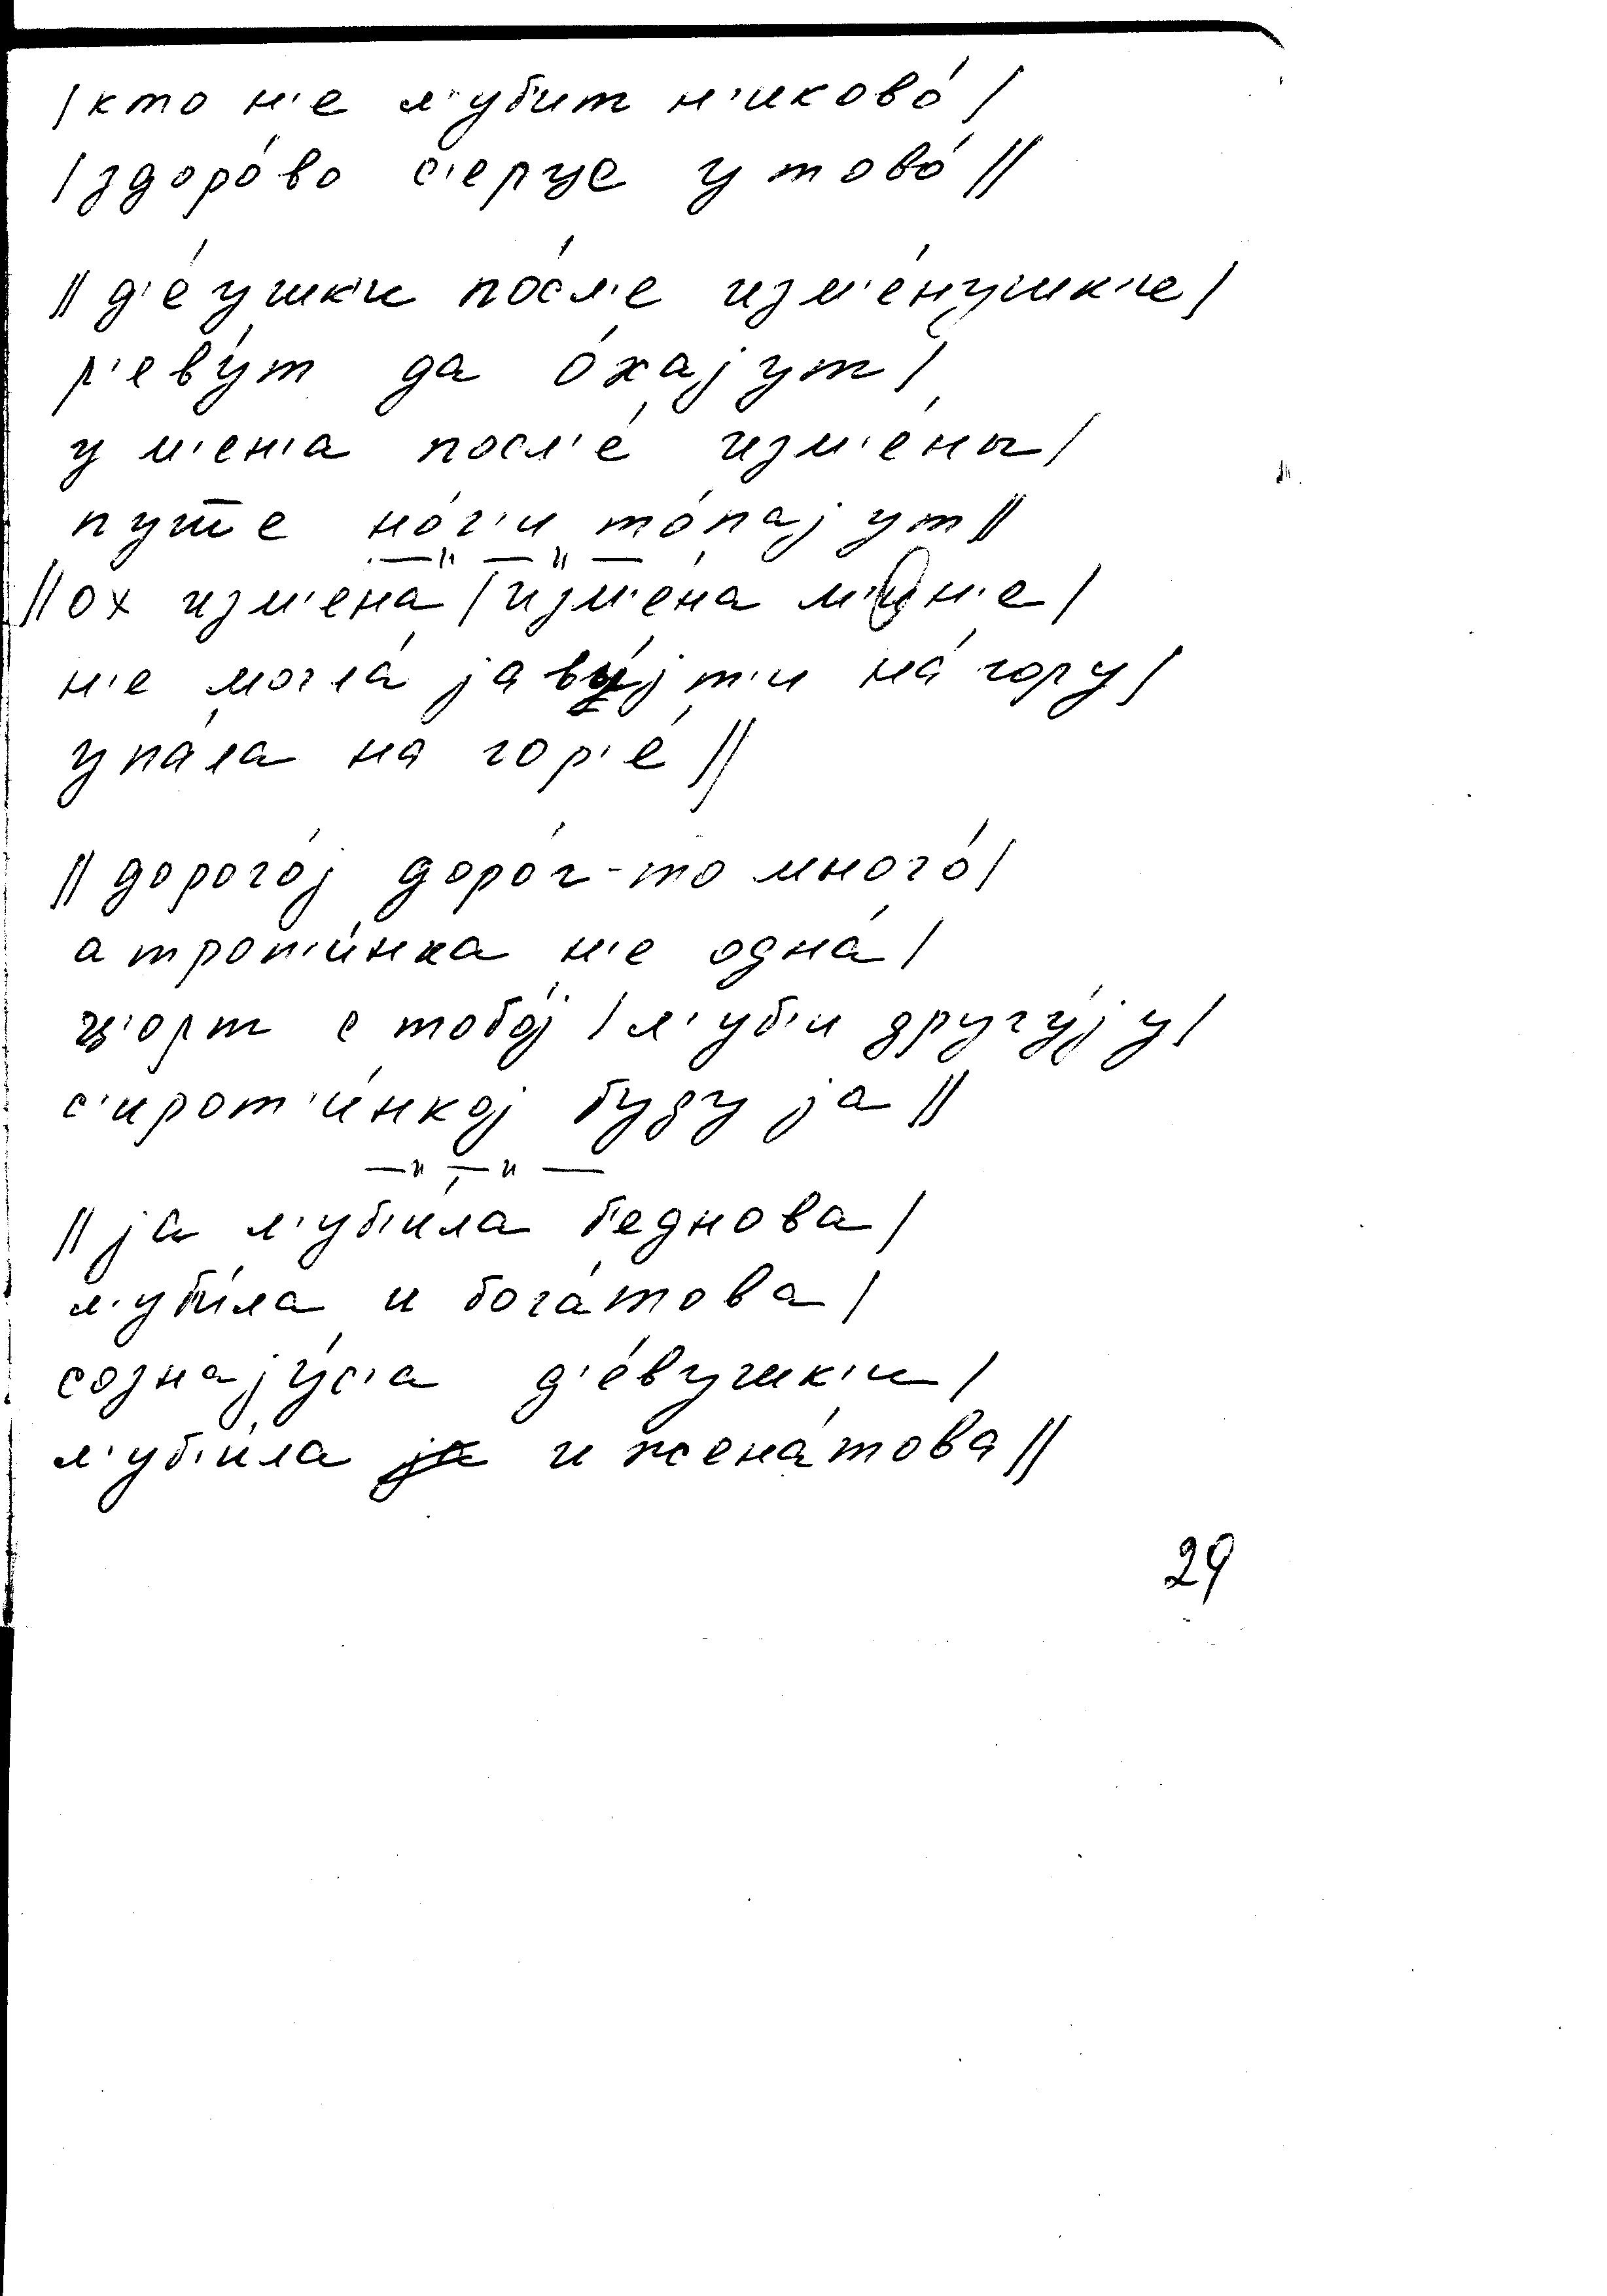 /кто н'е л'убит н'иково́/
/здоро́во с'ерце у тово́//
//д'е́ушк'и по́сл'е изм'е́нушк'и/
р'еву́т да о́хајут/
у м'ен'а посл'е́ изм'е́ны/
пуш̅е но́г'и то́пајут//
—〃—〃—
//ох изм'ена/изм'е́на м'ин'е/
н'е могла́ ја вы́јт'и на́ гору/
упа́ла на гор'е́//
//дорого́ј доро́г-то много́/
а троп'и́нка н'е одна́/
ц'орт с тобо́ј/л'уб'и другу́ју/
с'ирот'и́нкој буду ја//
—〃—〃—
//ја л'уб'и́ла б'еднова/
л'уб'и́ла и бога́това/
сознају́с'а д'е́вушк'и/
л'уб'и́ла ја и жена́това//
29